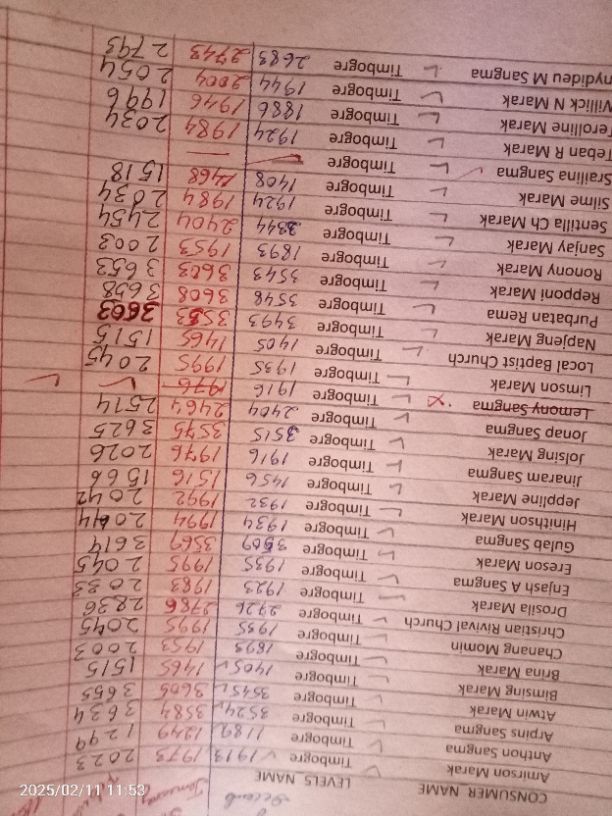 CONSUMER NAME LEVELS NAME
Amirson Marak Timbogre 1913 1973 2023
Anthon Sangma Timbogre 1189 1249 1299
Arpins Sangma Timbogre 3524 3584 3634
Atwin Marak Timbogre 3545 3605 3655
Bimsing Marak Timbogre 1405 1465 1515
Brina Marak Timbogre 1893 1953 2003
Chanang Momin Timbogre 1935 1995 2045
Christian Rivival Church Timbogre 2726 2786 2836
Drosila Marak Timbogre 1923 1983 2033
Enjash A Sangma Timbogre 1935 1995 2045
Ereson Marak Timbogre 3509 3569 3619
Gulab Sangma Timbogre 1934 1994 2044
Hinithson Marak Timbogre 1932 1992 2042
Jeppline Marak Timbogre 1456 1516 1566
Jinaram Sangma Timbogre 1916 1976 2026
Jolsing Marak Timbogre 3515 3575 3625
Jonap Sangma Timbogre 2404 2464 2514
Lemony Sangma Timbogre 1916 1976
Limson Marak Timbogre 1935 1995 2045
Local Baptist Church Timbogre 1405 1465 1515
Napjeng Marak Timbogre 3493 3553 3603
Purbatan Rema Timbogre 3548 3608 3658
Repponi Marak Timbogre 3543 3603 3653
Ronony Marak Timbogre 1893 1953 2003
Sanjay Marak Timbogre 2344 2404 2454
Sentilla Ch Marak Timbogre 1924 1984 2034
Silme Marak Timbogre 1408 1468 1518
Srailina Sangma Timbogre
Teban R Marak Timbogre 1924 1984 2034
Terolline Marak Timbogre 1886 1946 1996
Willick N Marak Timbogre 1944 2004 2054
nydideu M Sangma Timbogre 2683 2743 2793
2025/02/11 11:53